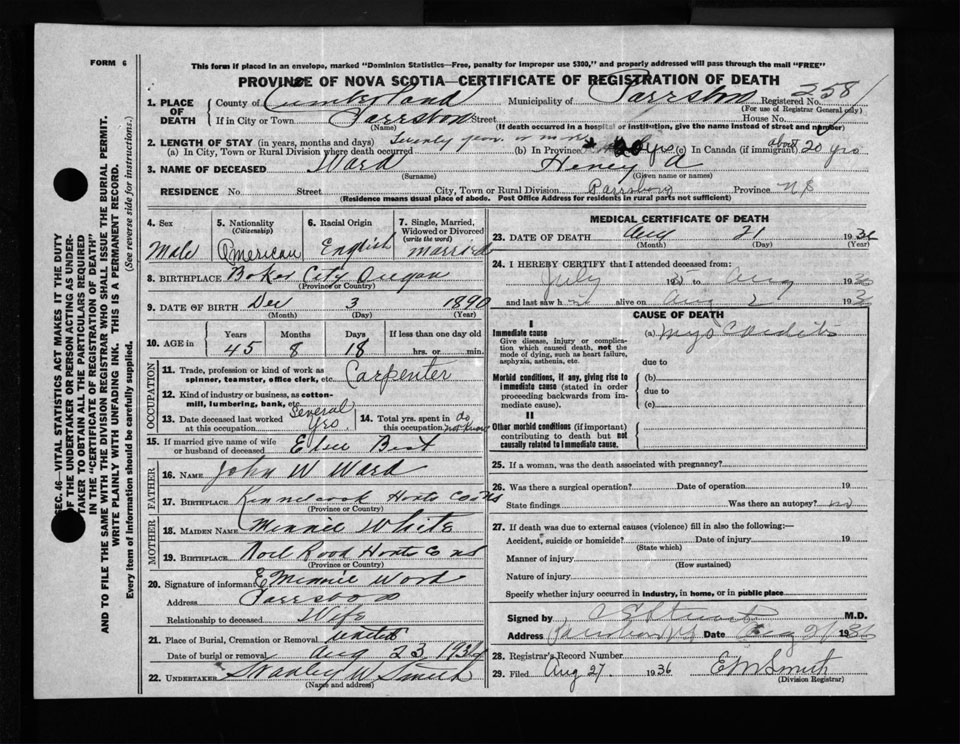 FORM 6
This form if placed in an envelope, marked "Dominion Statistics—Free, penalty for improper use $300," and properly addressed will pass through the mail "FREE"
PROVINCE OF NOVA SCOTIA—CERTIFICATE OF REGISTRATION OF DEATH
SEC. 46—VITAL STATISTICS ACT MAKES IT THE DUTY
OF THE UNDERTAKER OR PERSON ACTING AS UNDER-
TAKER TO OBTAIN ALL THE PARTICULARS REQUIRED
IN THE "CERTIFICATE OF REGISTRATION OF DEATH"
AND TO FILE THE SAME WITH THE DIVISION REGISTRAR WHO SHALL ISSUE THE BURIAL PERMIT.
WRITE PLAINLY WITH UNFADING INK. THIS IS A PERMANENT RECORD.
Every item of Information should be carefully supplied. (See reverse side for instructions.)
1. PLACE OF DEATH County of Cumberland Municipality of Parrsboro Registered No. 258
(For use of Registrar General only)
If in City or Town Parrsboro Street House No.
(Name) (If death occurred in a hospital or institution, give the name instead of street and number)
2. LENGTH OF STAY (in years, months and days)
(a) In City, Town or Rural Division where death occurred Twenty years or more (b) In Province yrs (c) In Canada (if immigrant) about 20 yrs
3. NAME OF DECEASED Ward Henry A
(Surname) (Given name or names)
RESIDENCE No Street City, Town or Rural Division Parrsboro Province NS
(Residence means usual place of abode. Post Office Address for residents in rural parts not sufficient)
4. Sex 5. Nationality (Citizenship) 6. Racial Origin 7. Single, Married, Widowed or Divorced (write the word)
Male American English married
8. BIRTHPLACE Baker City Oregon
(Province or Country)
9. DATE OF BIRTH Dec 3 1890
(Month) (Day) (Year)
10. AGE in Years Months Days If less than one day old
45 8 18 hrs. or min.
OCCUPATION
11. Trade, profession or kind of work as spinner, teamster, office clerk, etc. Carpenter
12. Kind of industry or business, as cotton-mill, lumbering, bank, etc.
13. Date deceased last worked at this occupation Several yrs 14. Total yrs. spent in this occupation do not know
15. If married give name of wife or husband of deceased Best
FATHER
16. NAME John W Ward
17. BIRTHPLACE Kennetcook Hants Co NS
(Province or Country)
MOTHER
18. MAIDEN NAME Minnie White
19. BIRTHPLACE Noel Road Hants Co NS
(Province or Country)
20. Signature of informant E Minnie Ward
Address Parrsboro
Relationship to deceased Wife
21. Place of Burial, Cremation or Removal United
Date of burial or removal Aug 23 1936
22. UNDERTAKER Stanley W Smith
(Name and address)
MEDICAL CERTIFICATE OF DEATH
23. DATE OF DEATH Aug 21 1936
(Month) (Day) (Year)
24. I HEREBY CERTIFY that I attended deceased from:
July 1935 to Aug 1936
and last saw him alive on Aug 2 1936
CAUSE OF DEATH
I
Immediate cause (a) Myocarditis
Give disease, injury or complication which caused death, not the mode of dying, such as heart failure, asphyxia, asthenia, etc.
due to
Morbid conditions, if any, giving rise to immediate cause (stated in order proceeding backwards from immediate cause). (b)
due to
(c)
II
Other morbid conditions (if important) contributing to death but not causally related to immediate cause.
25. If a woman, was the death associated with pregnancy?
26. Was there a surgical operation? Date of operation 19
State findings Was there an autopsy? no
27. If death was due to external causes (violence) fill in also the following:—
Accident, suicide or homicide? Date of injury 19
(State which)
Manner of injury
(How sustained)
Nature of injury
Specify whether injury occurred in industry, in home, or in public place
Signed by M.D.
Address Parrsboro NS Date Aug 21 1936
28. Registrar's Record Number
29. Filed Aug 27 1936 E M Smith
(Division Registrar)